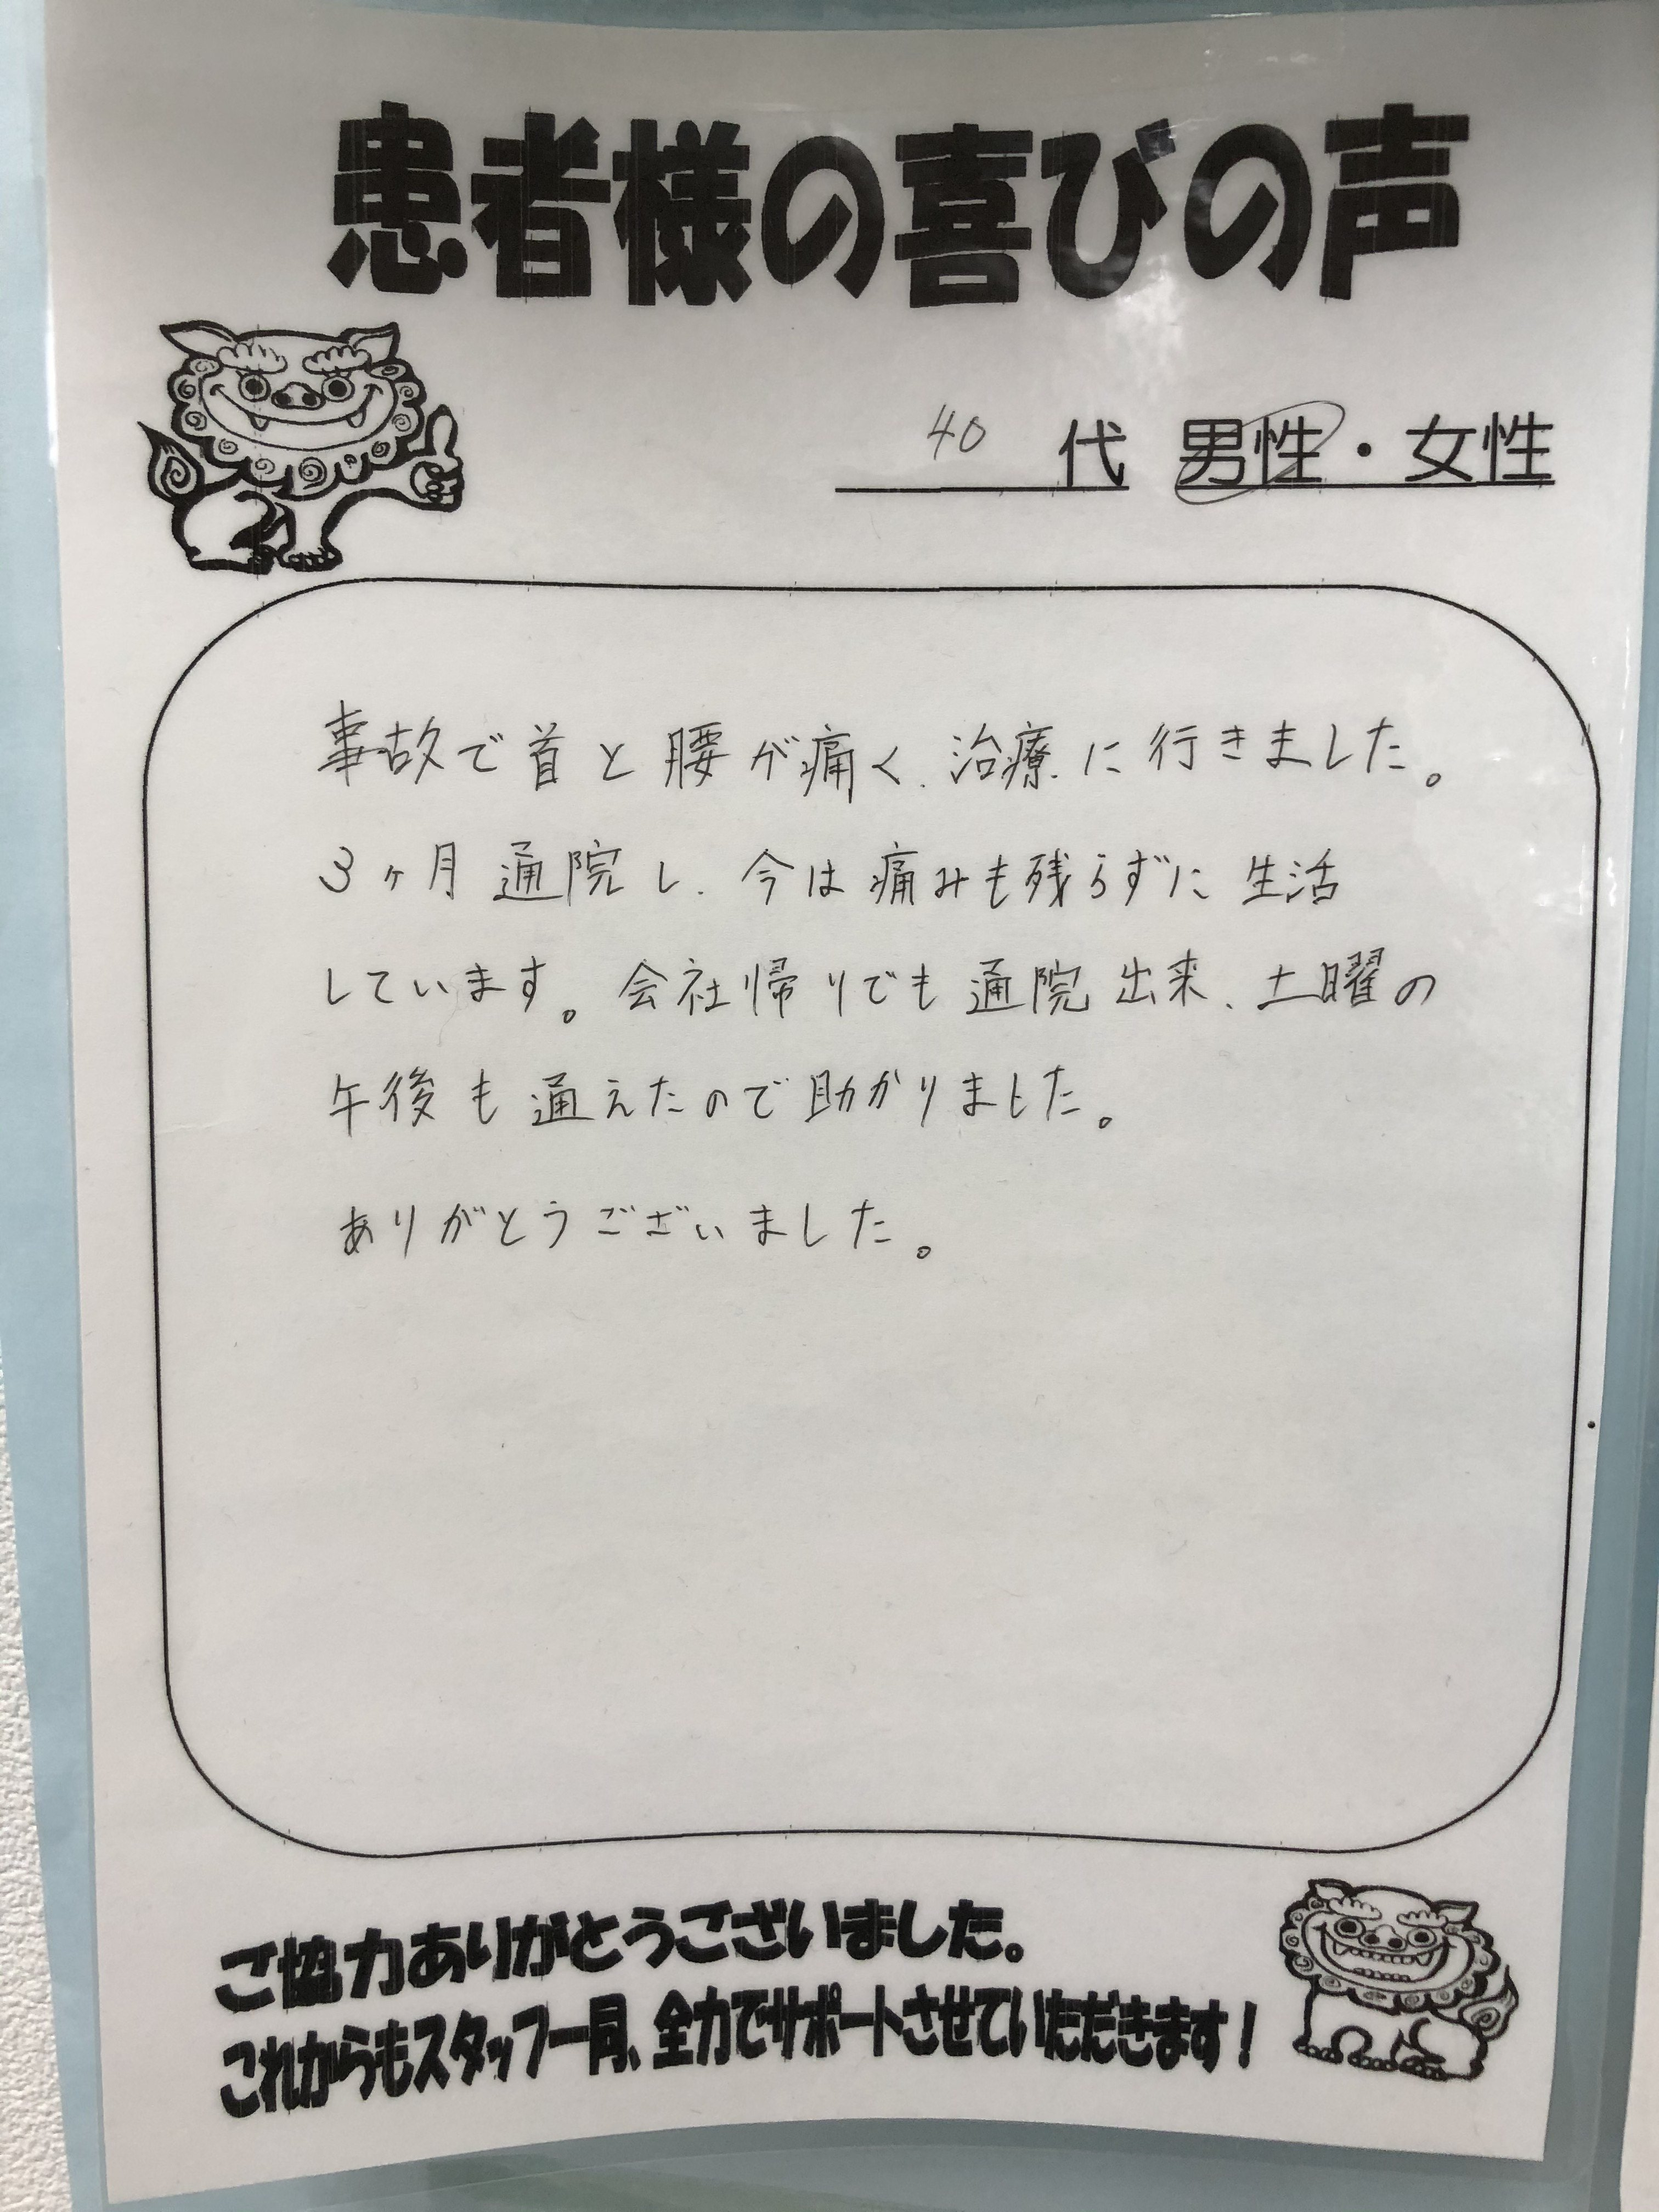 患者様の喜びの声
40 代 男性・女性
事故で首と腰が痛く、治療に行きました。
3ヶ月通院し、今は痛みも残らずに生活
しています。会社帰りでも通院出来、土曜の
午後も通えたので助かりました。
ありがとうございました。
ご協力ありがとうございました。
これからもスタッフ一同、全力でサポートさせていただきます!